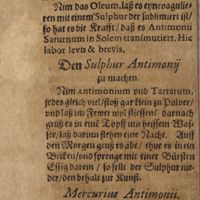 Nim das Oleum, laß es eyncoagulie-
ren mit einem Sulphur der sublimiert ist/
so hat es die Krafft / daß es Antimonii
Saturnum in Solem transmutiert. Hic
labor levis & brevis.
Den Sulphur Antimonij
zu machen.
Nim Antimonium und Tartarum,
jedes gleich viel/ stoß gar klein zu Pulver/
und laß im Fewer wol fliessen/ darnach
geuß es in eine Topff mit heissem Was-
ser/ laß darinn stehen eine Nacht. Auff
den Morgen geuß es abe/ thue es in ein
Becken/ und sprenge mit einer Bürsten
Essig darein / so felt der Sulphur nie-
der/ den behalt zur Kunst.
Mercurius Antimonii.